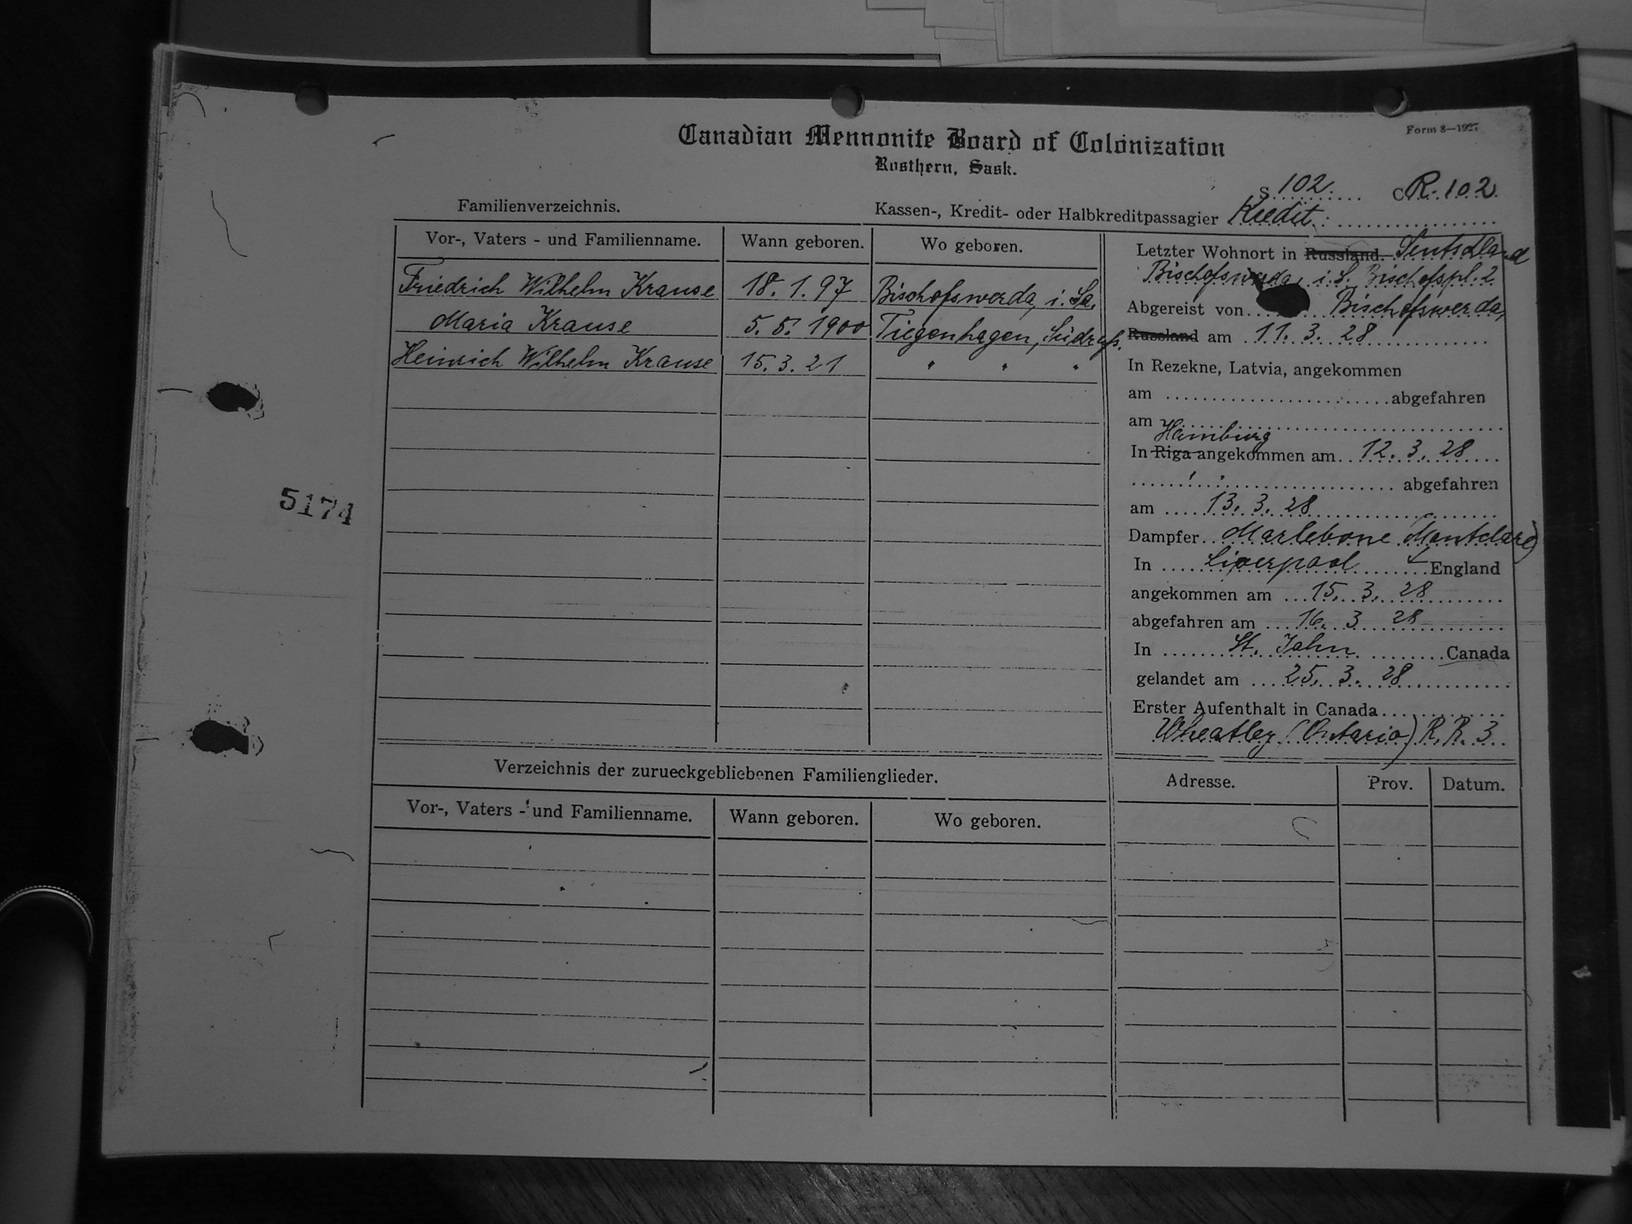 Form 8—1927
Canadian Mennonite Board of Colonization
Rosthern, Sask.
S 102. C R. 102.
Familienverzeichnis.
Kassen-, Kredit- oder Halbkreditpassagier Kredit.
Vor-, Vaters - und Familienname. Wann geboren. Wo geboren.
Friedrich Wilhelm Krause 18. 1. 97 Bischofswerda, i. Sa.
Maria Krause 5. 5. 1900 Tiegenhagen, Südrußl.
Heinrich Wilhelm Krause 15. 3. 21 " " "
Letzter Wohnort in Russland. Deutschland
Bischofswerda, i. S. Bischofspl. 2
Abgereist von Bischofswerda,
Russland am 11. 3. 28
In Rezekne, Latvia, angekommen
am abgefahren
am
Hamburg
In Riga angekommen am 12. 3. 28
abgefahren
am 13. 3. 28
Dampfer Marlebone Montclare)
In Liverpool England
angekommen am 15. 3. 28
abgefahren am 16. 3 28
In St. John Canada
gelandet am 25. 3. 28
Erster Aufenthalt in Canada
Wheatley (Ontario) R. R. 3.
5174
Verzeichnis der zurueckgebliebenen Familienglieder.
Vor-, Vaters - und Familienname. Wann geboren. Wo geboren.
Adresse. Prov. Datum.